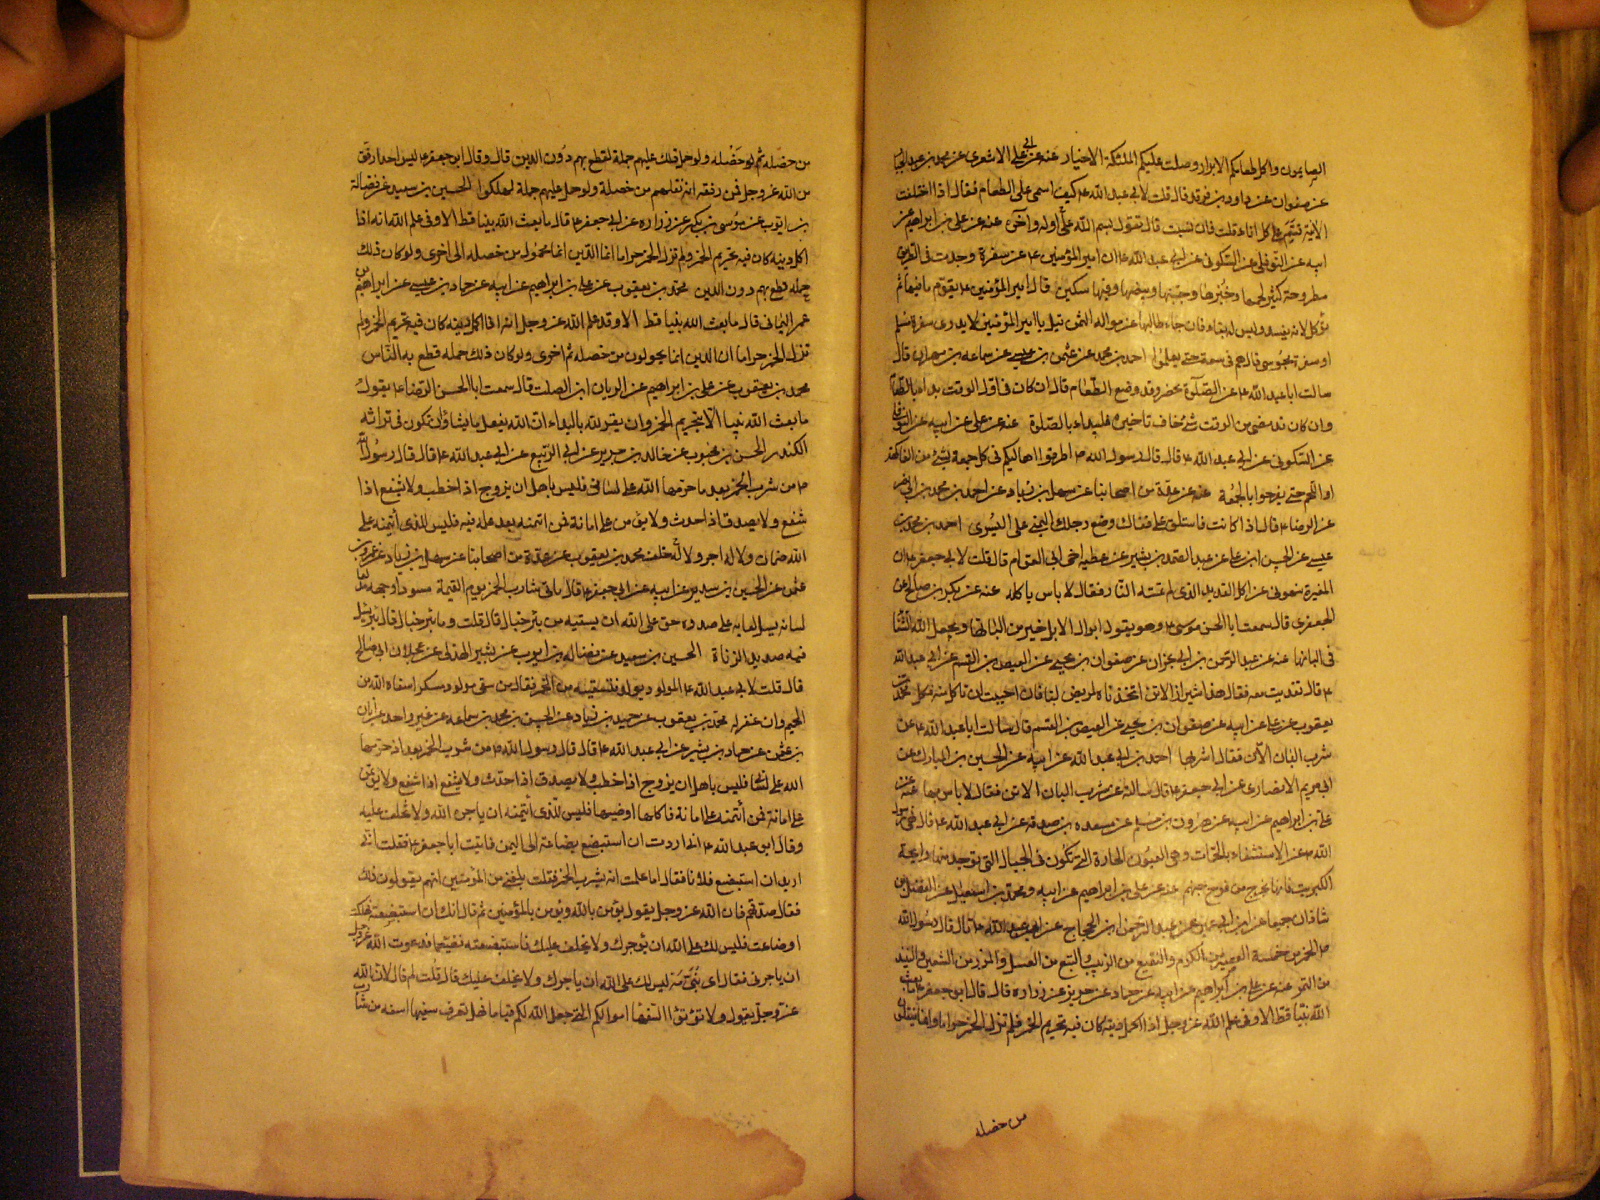 الصايمون واكل طعامكم الابرار وصلت عليكم الملئكة الاخيار عنه عن ابي علي الاشعري عن محمد بن عبد الجبار
عن صفوان عن داود بن فرقد قال قلت لابي عبد الله ع كيف اسمي على الطعام فقال اذا اختلفت
الانية فسم على كل اناء قلت فان نسيت قال تقول بسم الله على اوله واخره عنه عن علي بن ابراهيم عن
ابيه عن النوفلي عن السكوني عن ابي عبد الله ع ان امير المؤمنين ع عن سفرة وجدت في الطريق
مطروحة كثير لحمها وخبزها وجبنها وبيضها وفيها سكين قال امير المؤمنين ع يقوم ما فيها ثم
يؤكل لانه يفسد وليس له بقاء فان جاء طالبها غرموا له الثمن قيل يا امير المؤمنين لا يدرى سفرة مسلم
او سفرة مجوسي قال هم في سعة حتى يعلموا احمد بن محمد عن عثمن بن عيسى عن سماعه بن مهران قال
سالت ابا عبد الله ع عن الصلوة تحضر وقد وضع الطعام قال ان كان في اول الوقت يبدا بالطعام
وان كان قد مضى من الوقت شئ يخاف تاخيره فليبداء بالصلوة عنه عن علي عن ابيه عن النوفلي
عن السكوني عن ابي عبد الله ع قال قال رسول الله ص اطرفوا اهاليكم في كل جمعة بشئ من الفاكهة
او اللحم حتى يفرحوا بالجمعة عنه عن عدة من اصحابنا عن سهل بن زياد عن احمد بن محمد بن ابي نصر
عن الرضا ع قال اذا اكلت فاستلق على قفاك وضع رجلك اليمنى على اليسرى احمد بن محمد بن
عيسى عن الحسن ابن علي عن عبد الصمد بن بشير عن عطيه اخي ابي العوام قال قلت لابي جعفر ع ان
المغيرة عن اكل القديد الذي لم تمسه النار فقال لا باس باكله عنه عن بكر بن صالح عن
الجعفري قال سمعت ابا الحسن موسى ع وهو يقول ابوال الابل خير من البانها ويجعل الله الشفا
في البانها عنه عن عبد الرحمن بن ابي نجران عن صفوان بن يحيى عن العيص بن القسم عن ابي عبد الله
ع قال تغديت معه فقال هذا شيراز الاتن اتخذناه لمريض لنا فان احببت ان تاكل منه فكل محمد بن
يعقوب عن علي عن ابيه عن صفوان بن يحيى عن العيص بن القسم قال سالت ابا عبد الله ع عن
شرب البان الاتن فقال اشربها احمد بن ابي عبد الله عن ابيه عن الحسين بن المبارك عن
ابي مريم الانصاري عن ابي جعفر ع قال سالته عن شرب البان الاتن فقال لا باس بها عنه عن
علي بن ابراهيم عن ابيه عن هرون بن مسلم عن مسعده بن صدقه عن ابي عبد الله ع قال نهى رسول
الله ص عن الاستشفاء بالحمات وهي العيون الحارة التي تكون في الجبال التي توجد منها رايحة
الكبريت فانها تخرج من فوح جهنم عنه عن علي بن ابراهيم عن ابيه ومحمد بن اسمعيل عن الفضل بن
شاذان جميعا عن ابن ابي عمير عن عبد الرحمن ابن الحجاج عن ابي عبد الله ع قال قال رسول الله
ص الخمر من خمسة العصير من الكرم والنقيع من الزبيب والبتع من العسل والمزر من الشعير والنبيذ
من التمر عنه عن علي بن ابراهيم عن ابيه عن حماد عن حريز عن زراره قال قال ابو جعفر ع ما بعث
الله نبيا قط الا وفي علم الله عز وجل اذا اكمل دينه كان فيه تحريم الخمر فلم تزل الخمر حراما وانما ينقلون
من خصله
من خصله ثم لو خصله ولو حمل ذلك عليهم جملة لقطع بهم دون الدين قال وقال ابو جعفر ع ليس احد ارفق
من الله عز وجل فمن رفقه انه نقلهم من خصلة ولو حمل عليهم جملة لهلكوا الحسين بن سعيد عن فضالة
بن ايوب عن موسى بن بكر عن زراره عن ابي جعفر ع قال ما بعث الله نبيا قط الا وفي علم الله انه اذا
اكمل دينه كان فيه تحريم الخمر ولم تزل الخمر حراما انما الدين انما يحول من خصله الى اخرى ولو كان ذلك
جمله قطع بهم دون الدين محمد بن يعقوب عن علي بن ابراهيم عن ابيه عن حماد بن عيسى عن ابراهيم بن
عمر اليماني قال ما بعث الله نبيا قط الا وقد علم الله عز وجل انه اذا اكمل دينه كان فيه تحريم الخمر ولم
تزل الخمر حراما ان الدين انما يحولون من خصله ثم اخرى ولو كان ذلك جمله قطع به الناس
محمد بن يعقوب عن علي بن ابراهيم عن الريان ابن الصلت قال سمعت ابا الحسن الرضا ع يقول
ما بعث الله نبيا الا بتحريم الخمر وان يقر لله بالبداء ان الله يفعل ما يشاء وان يكون في تراثه
الكندر الحسن بن محبوب عن خالد بن جرير عن ابي الربيع عن ابي عبد الله ع قال قال رسول الله
ص من شرب الخمر بعد ما حرمها الله على لساني فليس باهل ان يزوج اذا خطب ولا يشفع اذا
شفع ولا يصدق اذ احدث ولا يؤمن على امانة فمن ائتمنه بعد علمه فيه فليس للذي ائتمنه على
الله ضمان ولا له اجر ولا له خلف محمد بن يعقوب عن عدة من اصحابنا عن سهل بن زياد عن عمرو بن
عثمن عن الحسين بن سدير عن ابيه عن ابي جعفر ع قال ياتي شارب الخمر يوم القيمة مسودا وجهه
لسانه يسيل لعابه على صدره حق على الله ان يسقيه من بئر خبال قال قلت وما بئر خبال قال بئر يسيل
فيه صديد الزناة الحسين بن سعيد عن فضاله بن ايوب عن بشير الهذلي عن عجلان ابي صالح
قال قلت لابي عبد الله ع المولود يولد فنسقيه من الخمر فقال من سقى مولودا مسكرا سقاه الله من
الحميم وان غفر له محمد بن يعقوب عن حميد بن زياد عن الحسن بن محمد بن سماعه عن غير واحد عن ابان
بن عثمن عن حماد بن بشير عن ابي عبد الله ع قال قال رسول الله ص من شرب الخمر بعد اذ حرمها
الله على لساني فليس باهل ان يزوج اذا خطب ولا يصدق اذا حدث ولا يشفع اذا شفع ولا يؤتمن
على امانة فمن أئتمنه على امانة فاكلها او ضيعها فليس للذي ائتمنه ان ياجره الله ولا يخلف عليه
وقال ابو عبد الله ع اني اردت ان استبضع بضاعة الى اليمن فاتيت ابا جعفر ع فقلت اني
اريد ان استبضع فلانا فقال اما علمت انه يشرب الخمر فقلت بلغني من المؤمنين انهم يقولون ذلك
فقال صدقهم فان الله عز وجل يقول يؤمن بالله ويؤمن بالمؤمنين ثم قال انك ان استبضعته فهلكت
او ضاعت فليس لك على الله ان يؤجرك ولا يخلف عليك فاستبضعته فضيعها فدعوت الله عز وجل
ان ياجرني فقال اي بني مه ليس لك على الله ان ياجرك ولا يخلف عليك قال قلت لم قال لان الله
عز وجل يقول ولا تؤتوا السفها اموالكم التي جعل الله لكم قياما فهل تعرف سفيها اسفه من شارب